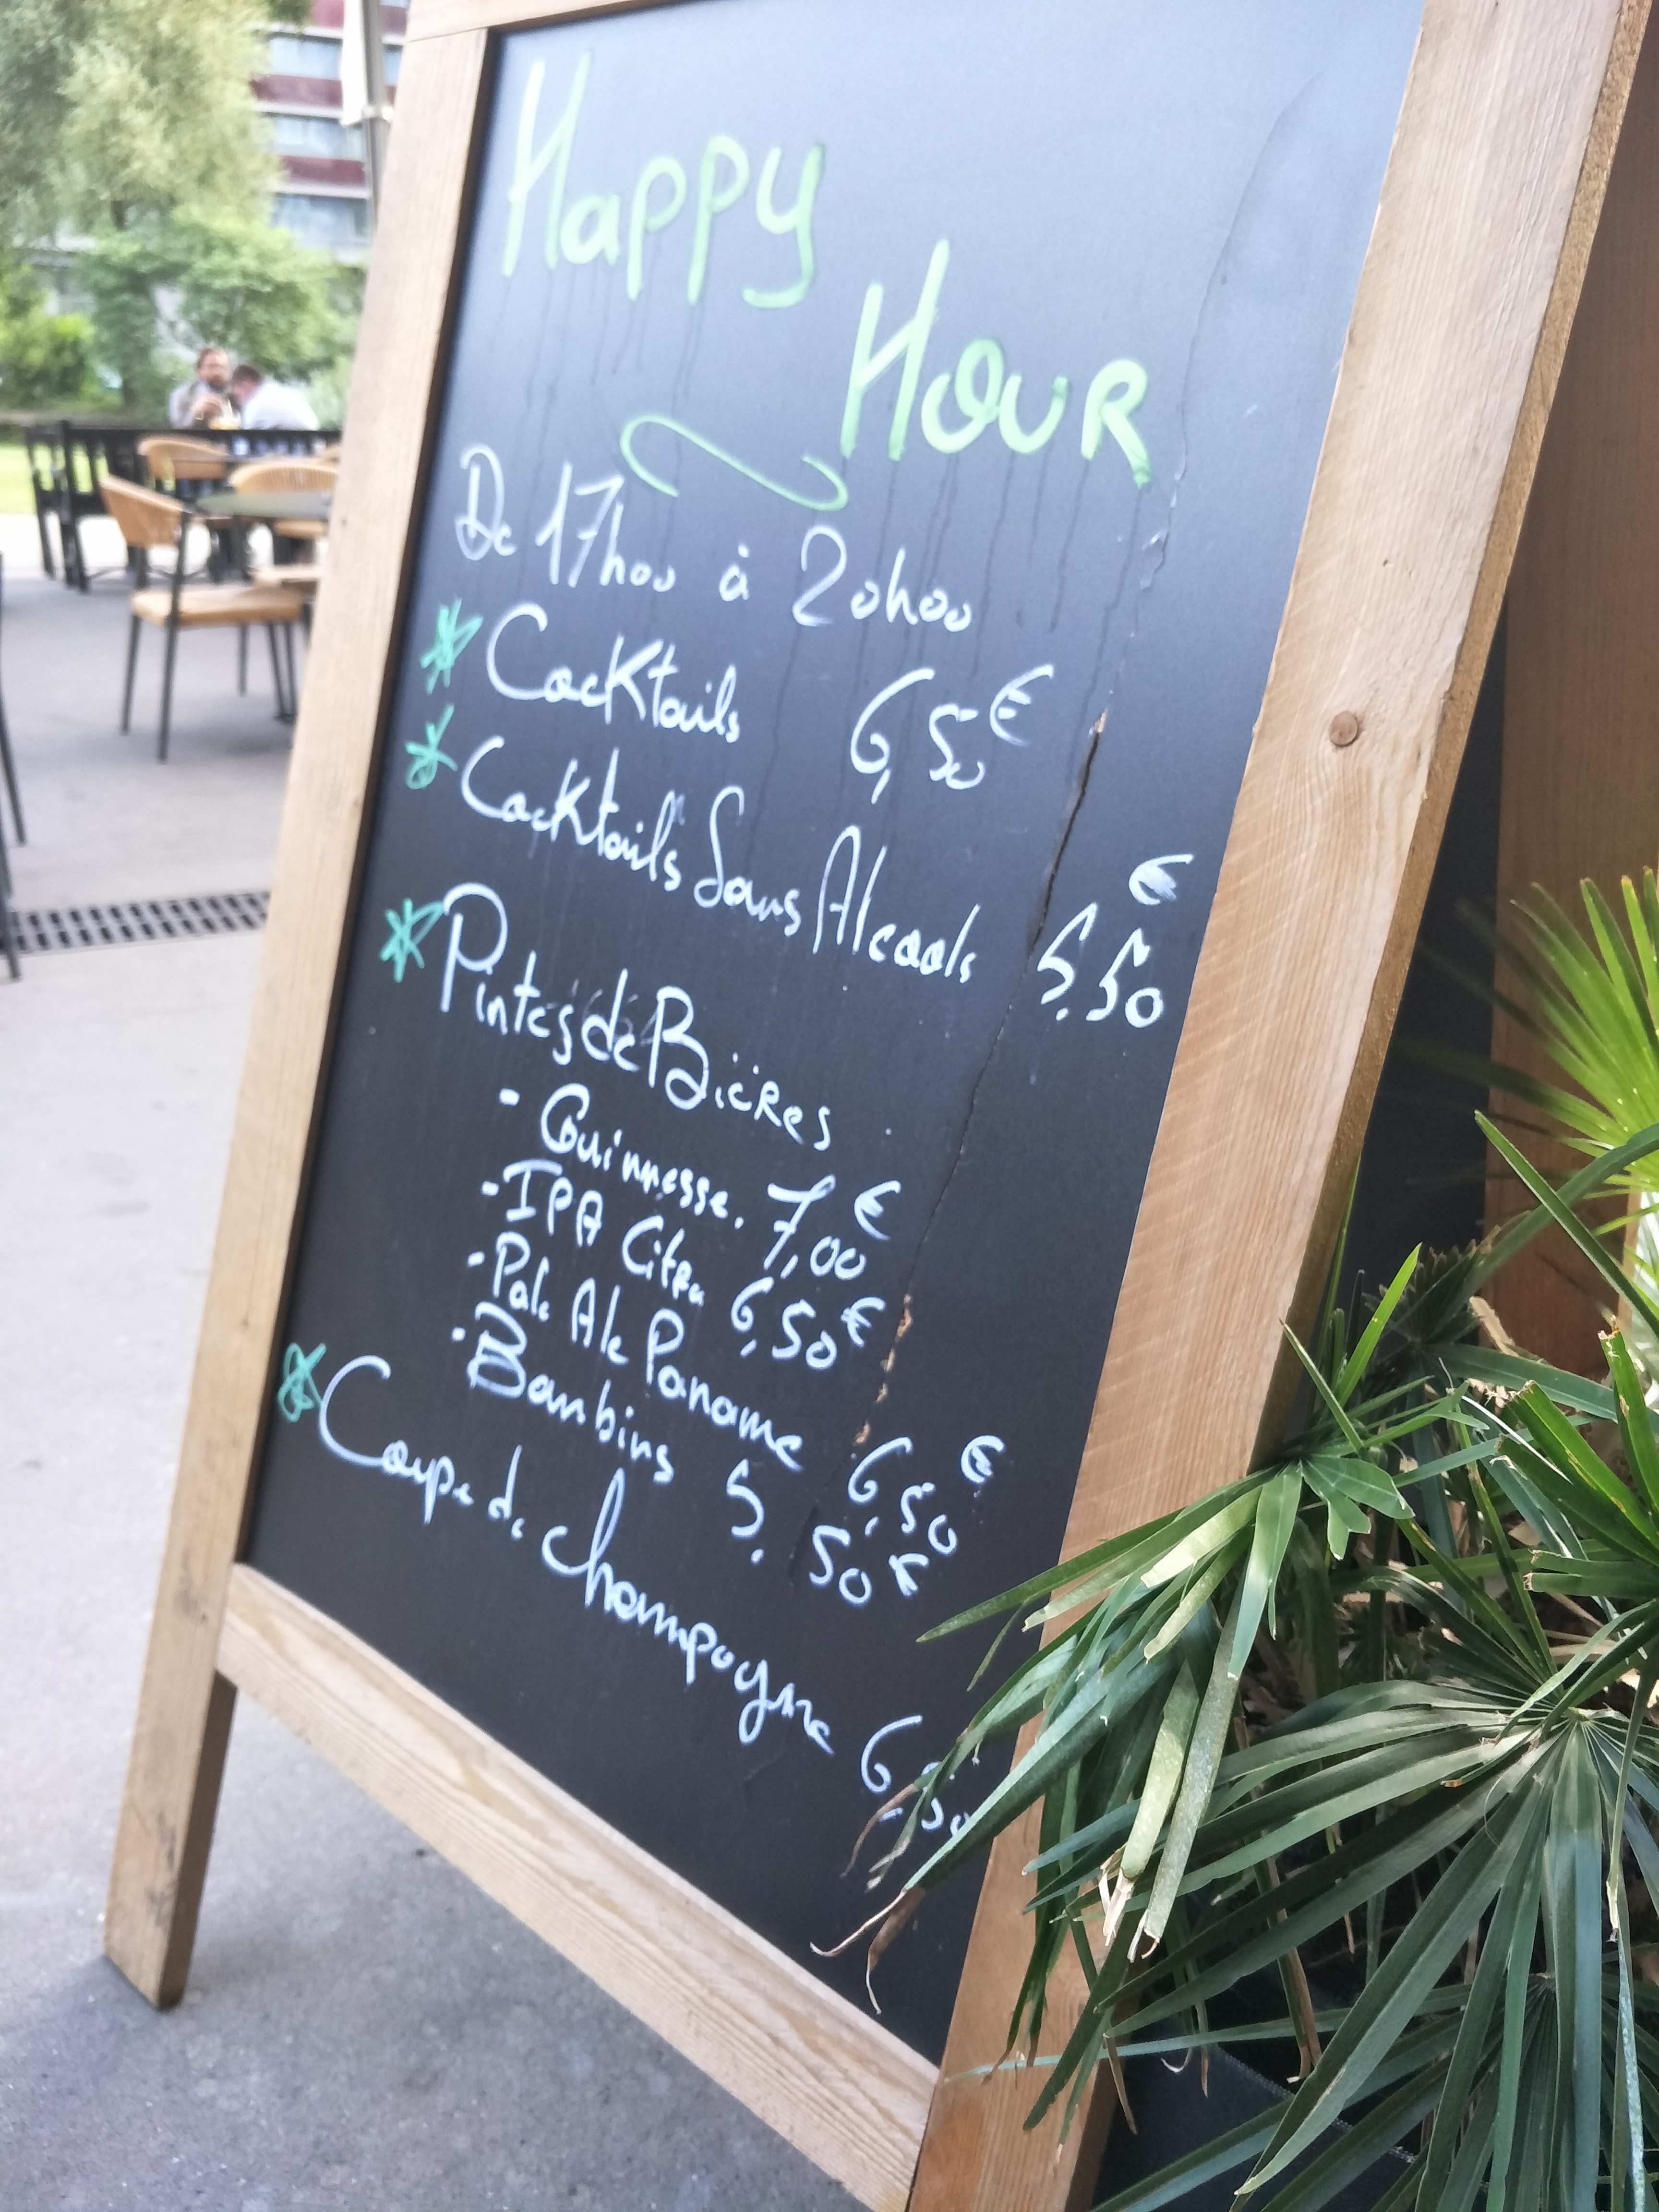 Happy
Hour
De 17h00 à 20h00
Cocktails 6,50€
Cocktails Sans Alcools 5,50€
Pintes de Bières
- Guinnesse. 7,00€
- IPA Citra 6,50€
- Pale Ale Paname 6,50€
- Bambins 5.50€
Coupe de champagne 6,50